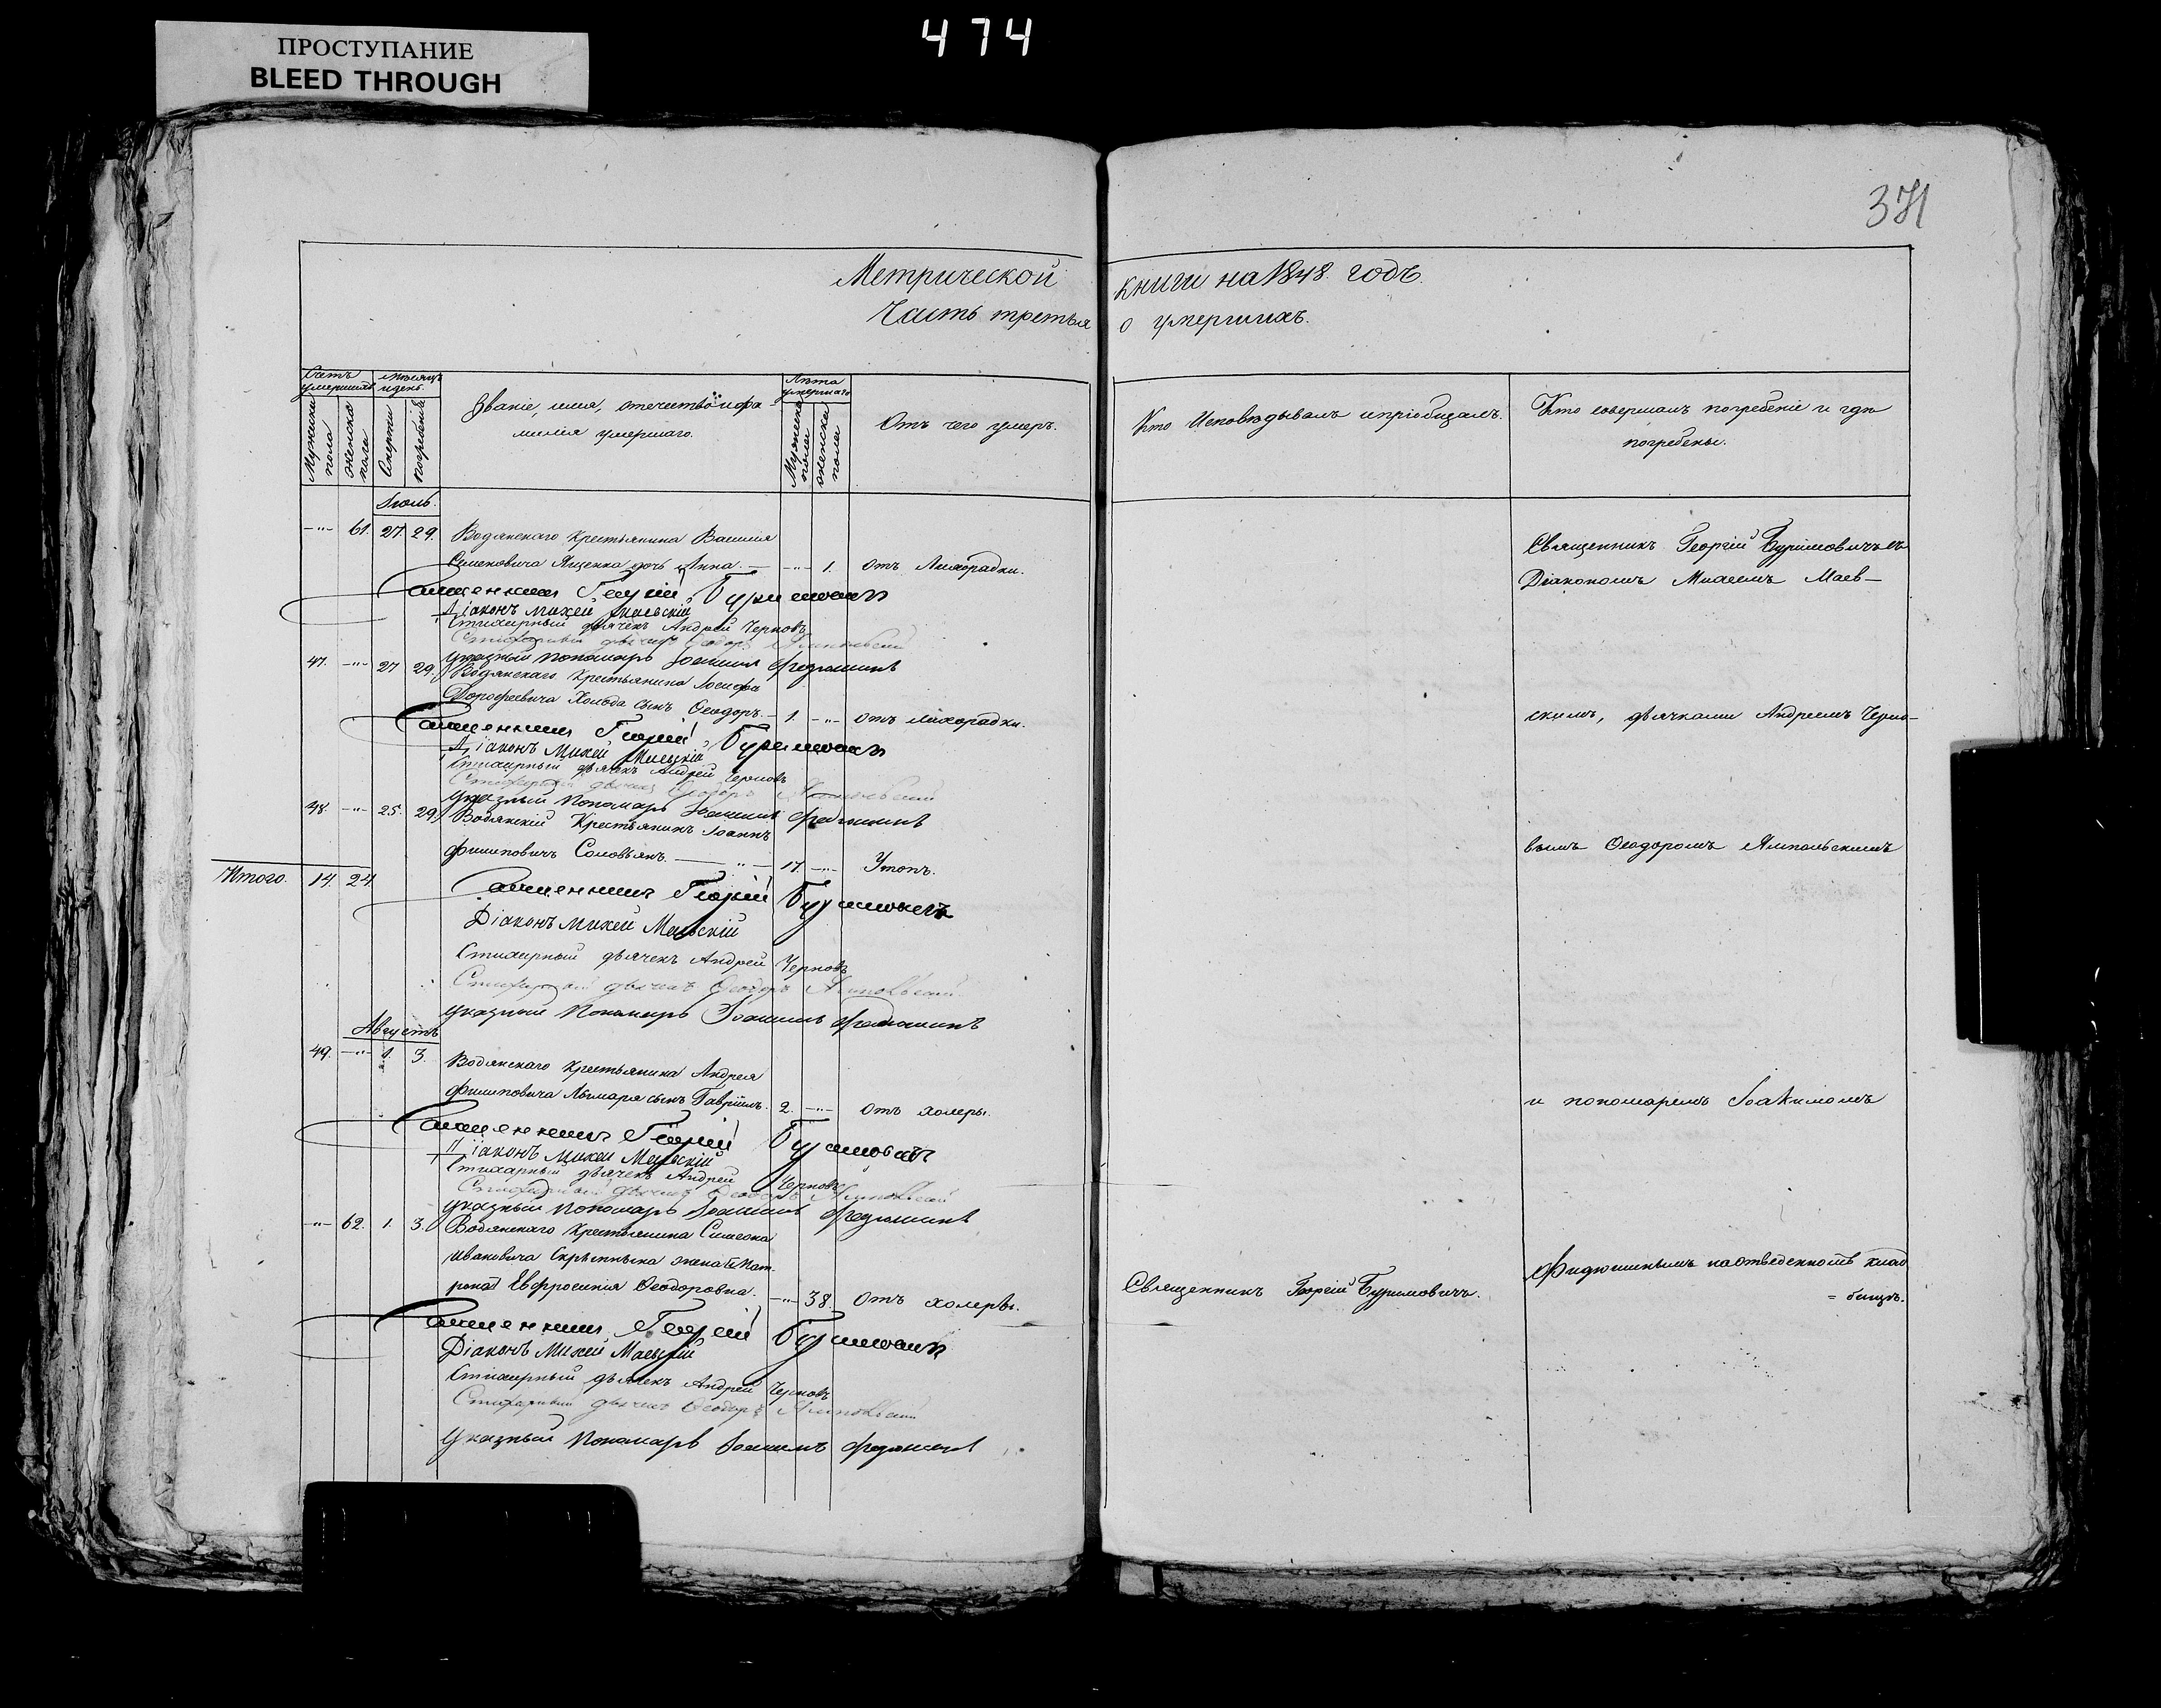 ПРОСТУПАНИЕ
BLEED THROUGH
474
371
Метрической книги на 1848. годъ.
Часть третья о умершихъ.
Счетъ умершихъ
Мужеска пола
Женска пола
Мѣсяцъ и день.
Смерти
погребенія
Званіе, имя, отечество и фа-
милія умершаго.
Лѣта умершаго
Мужеска пола
Женска пола
Отъ чего умеръ.
Кто Исповѣдывалъ и пріобщалъ.
Кто совершалъ погребеніе и гдѣ
погребены.
Іюль.
-"- 61. 27. 29. Водянскаго Крестьянина Василія
Семеновича Ященка дочь Анна. — -"- 1. отъ Лихорадки.
Священникъ Георгій Буримовичъ съ
Діакономъ Михеемъ Маев-
Священникъ Георгій Буримовичъ
Діаконъ Михей Маевскій
Стихарный дьячекъ Андрей Черновъ
Стихарный дьячекъ Ѳеодоръ Ямпольскій
Указный Пономарь Іоакимъ Федюшинъ
47. -"- 27 29. Водянскаго Крестьянина Іосифа
Дорофеевича Холода сынъ Ѳеодоръ. — 1. -"- отъ лихорадки.
скимъ, дьячками Андреемъ Черно-
Священникъ Георгій Буримовичъ
Діаконъ Михей Маевскій
Стихарный дьячекъ Андрей Черновъ
Стихарный дьячекъ Ѳеодоръ Ямпольскій
Указный Пономарь Іоакимъ Федюшинъ
48 -"- 25. 29. Водянскій Крестьянинъ Іоаннъ
Филиповичъ Соловьянъ. — " — 17. -"- Утопъ.
вымъ Ѳеодоромъ Ямпольскимъ
Итого. 14. 24
Священникъ Георгій Буримовичъ
Діаконъ Михей Маевскій
Стихарный дьячекъ Андрей Черновъ
Стихарный дьячекъ Ѳеодоръ Ямпольскій
Указный Пономарь Іоакимъ Федюшинъ
Августъ
49. -"- 1. 3. Водянскаго Крестьянина Андрея
Филиповича Лымаря сынъ Гавріилъ. 2. -"- отъ холеры.
и пономаремъ Іоакимомъ
Священникъ Георгій Буримовичъ
Діаконъ Михей Маевскій
Стихарный дьячекъ Андрей Черновъ
Стихарный дьячекъ Ѳеодоръ Ямпольскій
Указный Пономарь Іоакимъ Федюшинъ
-"- 62. 1. 3. Водянскаго Крестьянина Симеона
Ивановича Скрыпныка жена
Евфросинія Ѳеодоровна. -"- 38. отъ холеры.
Священникъ Георгій Буримовичъ.
Фидюшинымъ на отведенномъ клад
= бищѣ.
Священникъ Георгій Буримовичъ
Діаконъ Михей Маевскій
Стихарный дьячекъ Андрей Черновъ
Стихарный дьячекъ Ѳеодоръ Ямпольскій
Указный Пономарь Іоакимъ Федюшинъ